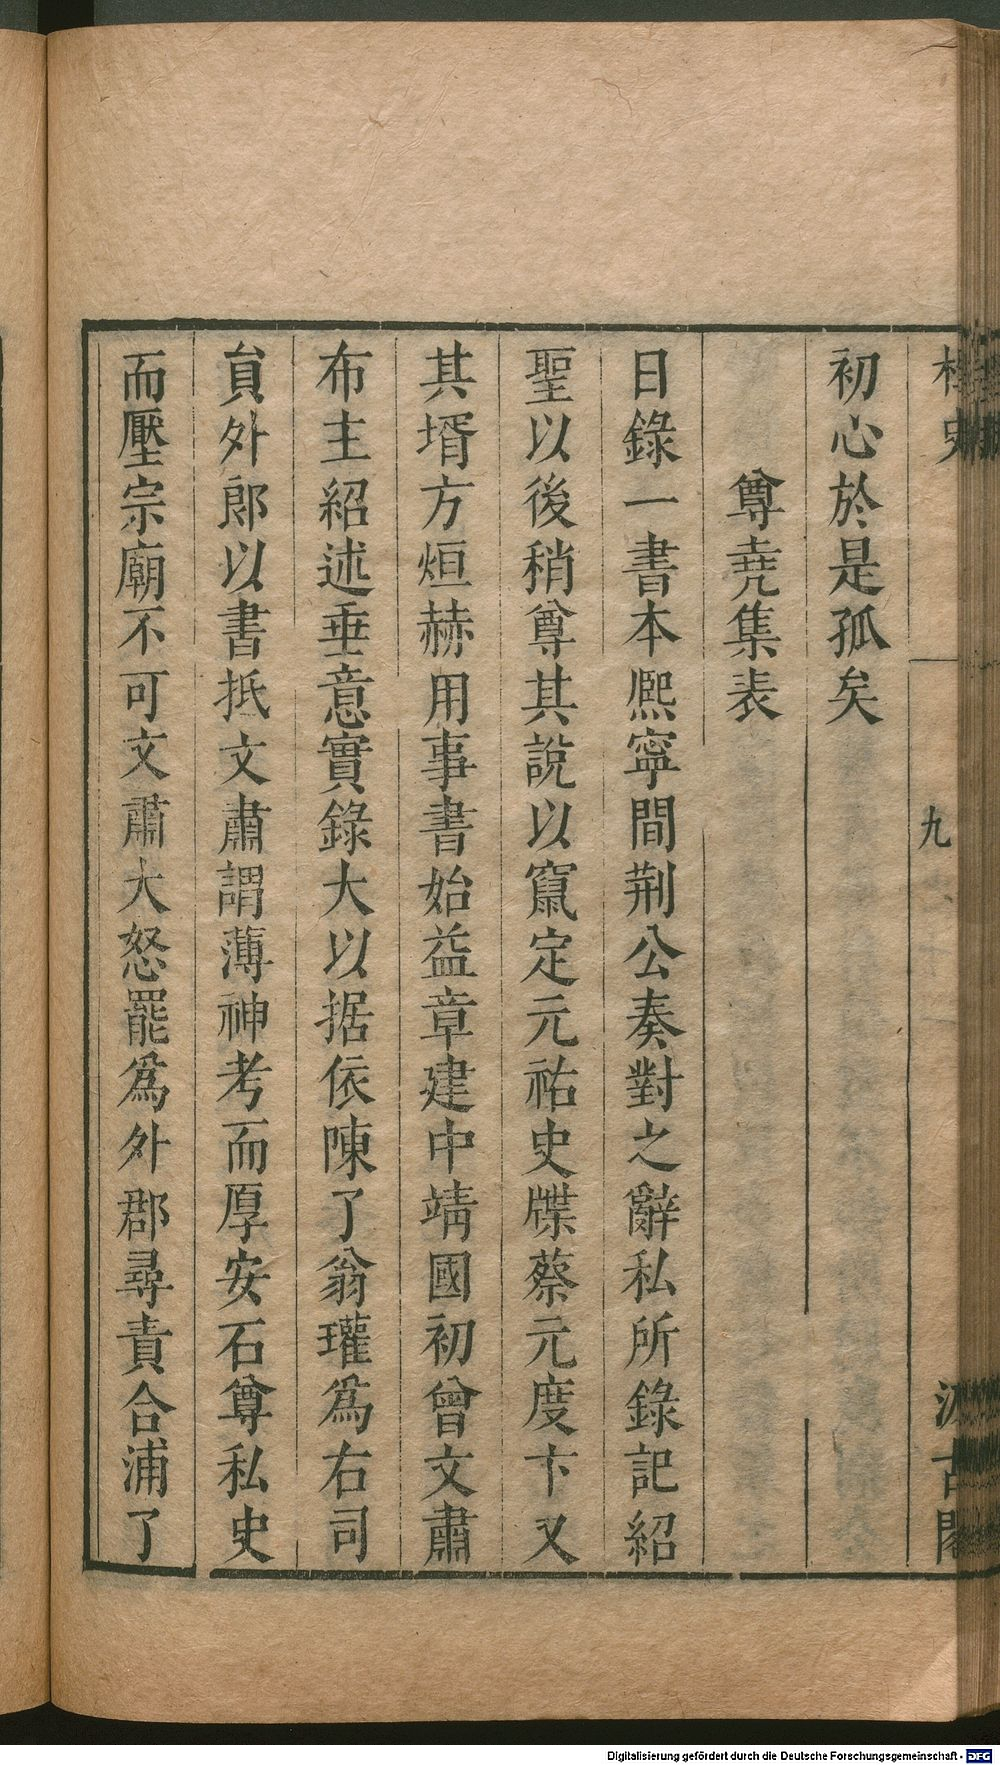 初心於是孤矣
尊堯集表
日錄一書本熈寧間荆公奏對之辭私所錄記紹
聖以後稍尊其說以竄定元祐史牒蔡元度卞又
其壻方烜赫用事書始益章建中靖國初曾文肅
布主紹述垂意實錄大以据依陳了翁瓘爲右司
貟外郎以書抵文肅謂薄神考而厚安石尊私史
而壓宗廟不可文肅大怒罷爲外郡尋責合浦了
九
Digitalisierung gefördert durch die Deutsche Forschungsgemeinschaft - DFG